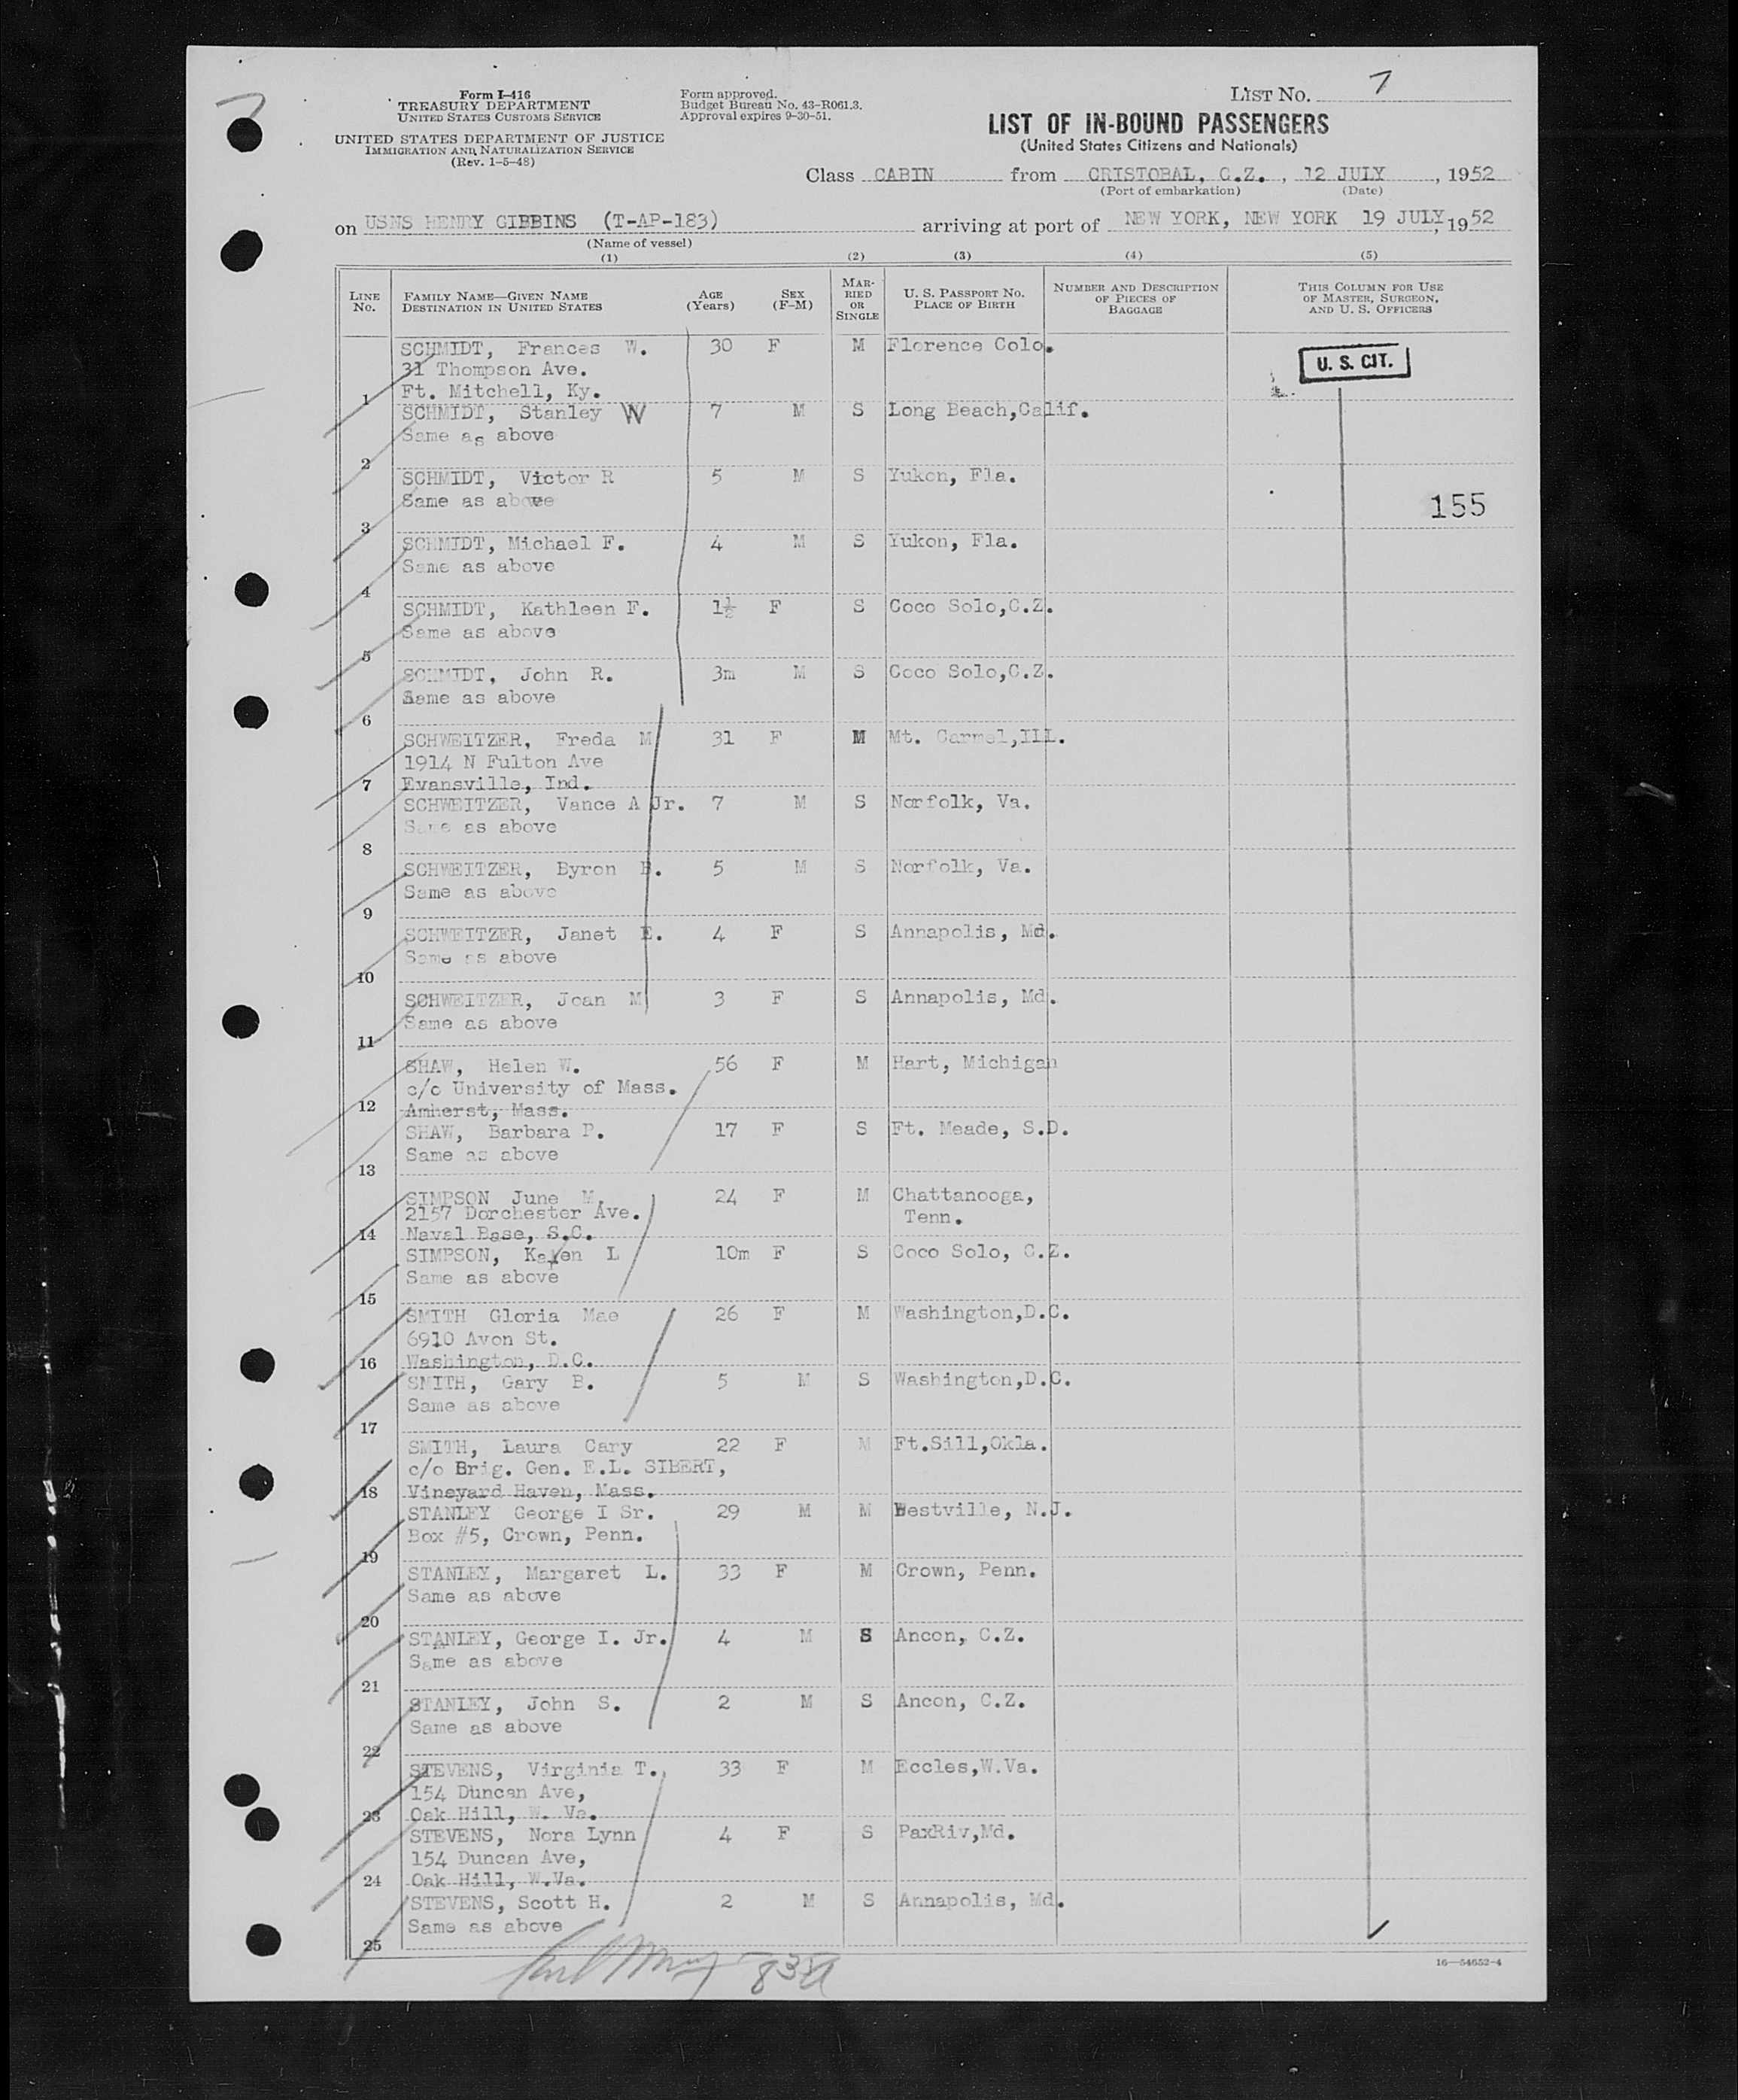 7
Form I-416
TREASURY DEPARTMENT
UNITED STATES CUSTOMS SERVICE
UNITED STATES DEPARTMENT OF JUSTICE
IMMIGRATION AND NATURALIZATION SERVICE
(Rev. 1-5-48)
Form approved.
Budget Bureau No. 43-R061.3.
Approval expires 9-30-51.
LIST NO. 7
LIST OF IN-BOUND PASSENGERS
(United States Citizens and Nationals)
Class CABIN from CRISTOBAL, C.Z. , 12 JULY , 1952
(Port of embarkation) (Date)
on USNS HENRY GIBBINS (T-AP-183) arriving at port of NEW YORK, NEW YORK 19 JULY, 1952
(Name of vessel)
(1) (2) (3) (4) (5)
LINE NO. FAMILY NAME—GIVEN NAME DESTINATION IN UNITED STATES AGE (Years) SEX (F-M) MARRIED OR SINGLE U. S. PASSPORT NO. PLACE OF BIRTH NUMBER AND DESCRIPTION OF PIECES OF BAGGAGE THIS COLUMN FOR USE OF MASTER, SURGEON, AND U. S. OFFICERS
SCHMIDT, Frances W. 30 F M Florence Colo.
U. S. CIT.
31 Thompson Ave.
1 Ft. Mitchell, Ky.
SCHMIDT, Stanley W 7 M S Long Beach,Calif.
Same as above
2
SCHMIDT, Victor R 5 M S Yukon, Fla.
Same as above
155
3
SCHMIDT, Michael F. 4 M S Yukon, Fla.
Same as above
4
SCHMIDT, Kathleen F. 1½ F S Coco Solo,C.Z.
Same as above
5
SCHMIDT, John R. 3m M S Coco Solo,C.Z.
Same as above
6
SCHWEITZER, Freda M 31 F M Mt. Carmel,Ill.
1914 N Fulton Ave
7 Evansville, Ind.
SCHWEITZER, Vance A Jr. 7 M S Norfolk, Va.
Same as above
8
SCHWEITZER, Byron B. 5 M S Norfolk, Va.
Same as above
9
SCHWEITZER, Janet E. 4 F S Annapolis, Md.
Same as above
10
SCHWEITZER, Joan M 3 F S Annapolis, Md.
Same as above
11
SHAW, Helen W. 56 F M Hart, Michigan
c/o University of Mass.
12 Amherst, Mass.
SHAW, Barbara P. 17 F S Ft. Meade, S.D.
Same as above
13
SIMPSON June M. 24 F M Chattanooga,
2157 Dorchester Ave. Tenn.
14 Naval Base, S.C.
SIMPSON, Karen L 10m F S Coco Solo, C.Z.
Same as above
15
SMITH Gloria Mae 26 F M Washington,D.C.
6910 Avon St.
16 Washington, D.C.
SMITH, Gary B. 5 M S Washington,D.C.
Same as above
17
SMITH, Laura Cary 22 F M Ft.Sill,Okla.
c/o Brig. Gen. E.L. SIBERT,
18 Vineyard Haven, Mass.
STANLEY George I Sr. 29 M M Westville, N.J.
Box #5, Crown, Penn.
19
STANLEY, Margaret L. 33 F M Crown, Penn.
Same as above
20
STANLEY, George I. Jr. 4 M S Ancon, C.Z.
Same as above
21
STANLEY, John S. 2 M S Ancon, C.Z.
Same as above
22
STEVENS, Virginia T. 33 F M Eccles,W.Va.
154 Duncan Ave,
23 Oak Hill, W. Va.
STEVENS, Nora Lynn 4 F S PaxRiv,Md.
154 Duncan Ave,
24 Oak Hill, W.Va.
STEVENS, Scott H. 2 M S Annapolis, Md.
Same as above
25
16—54652-4